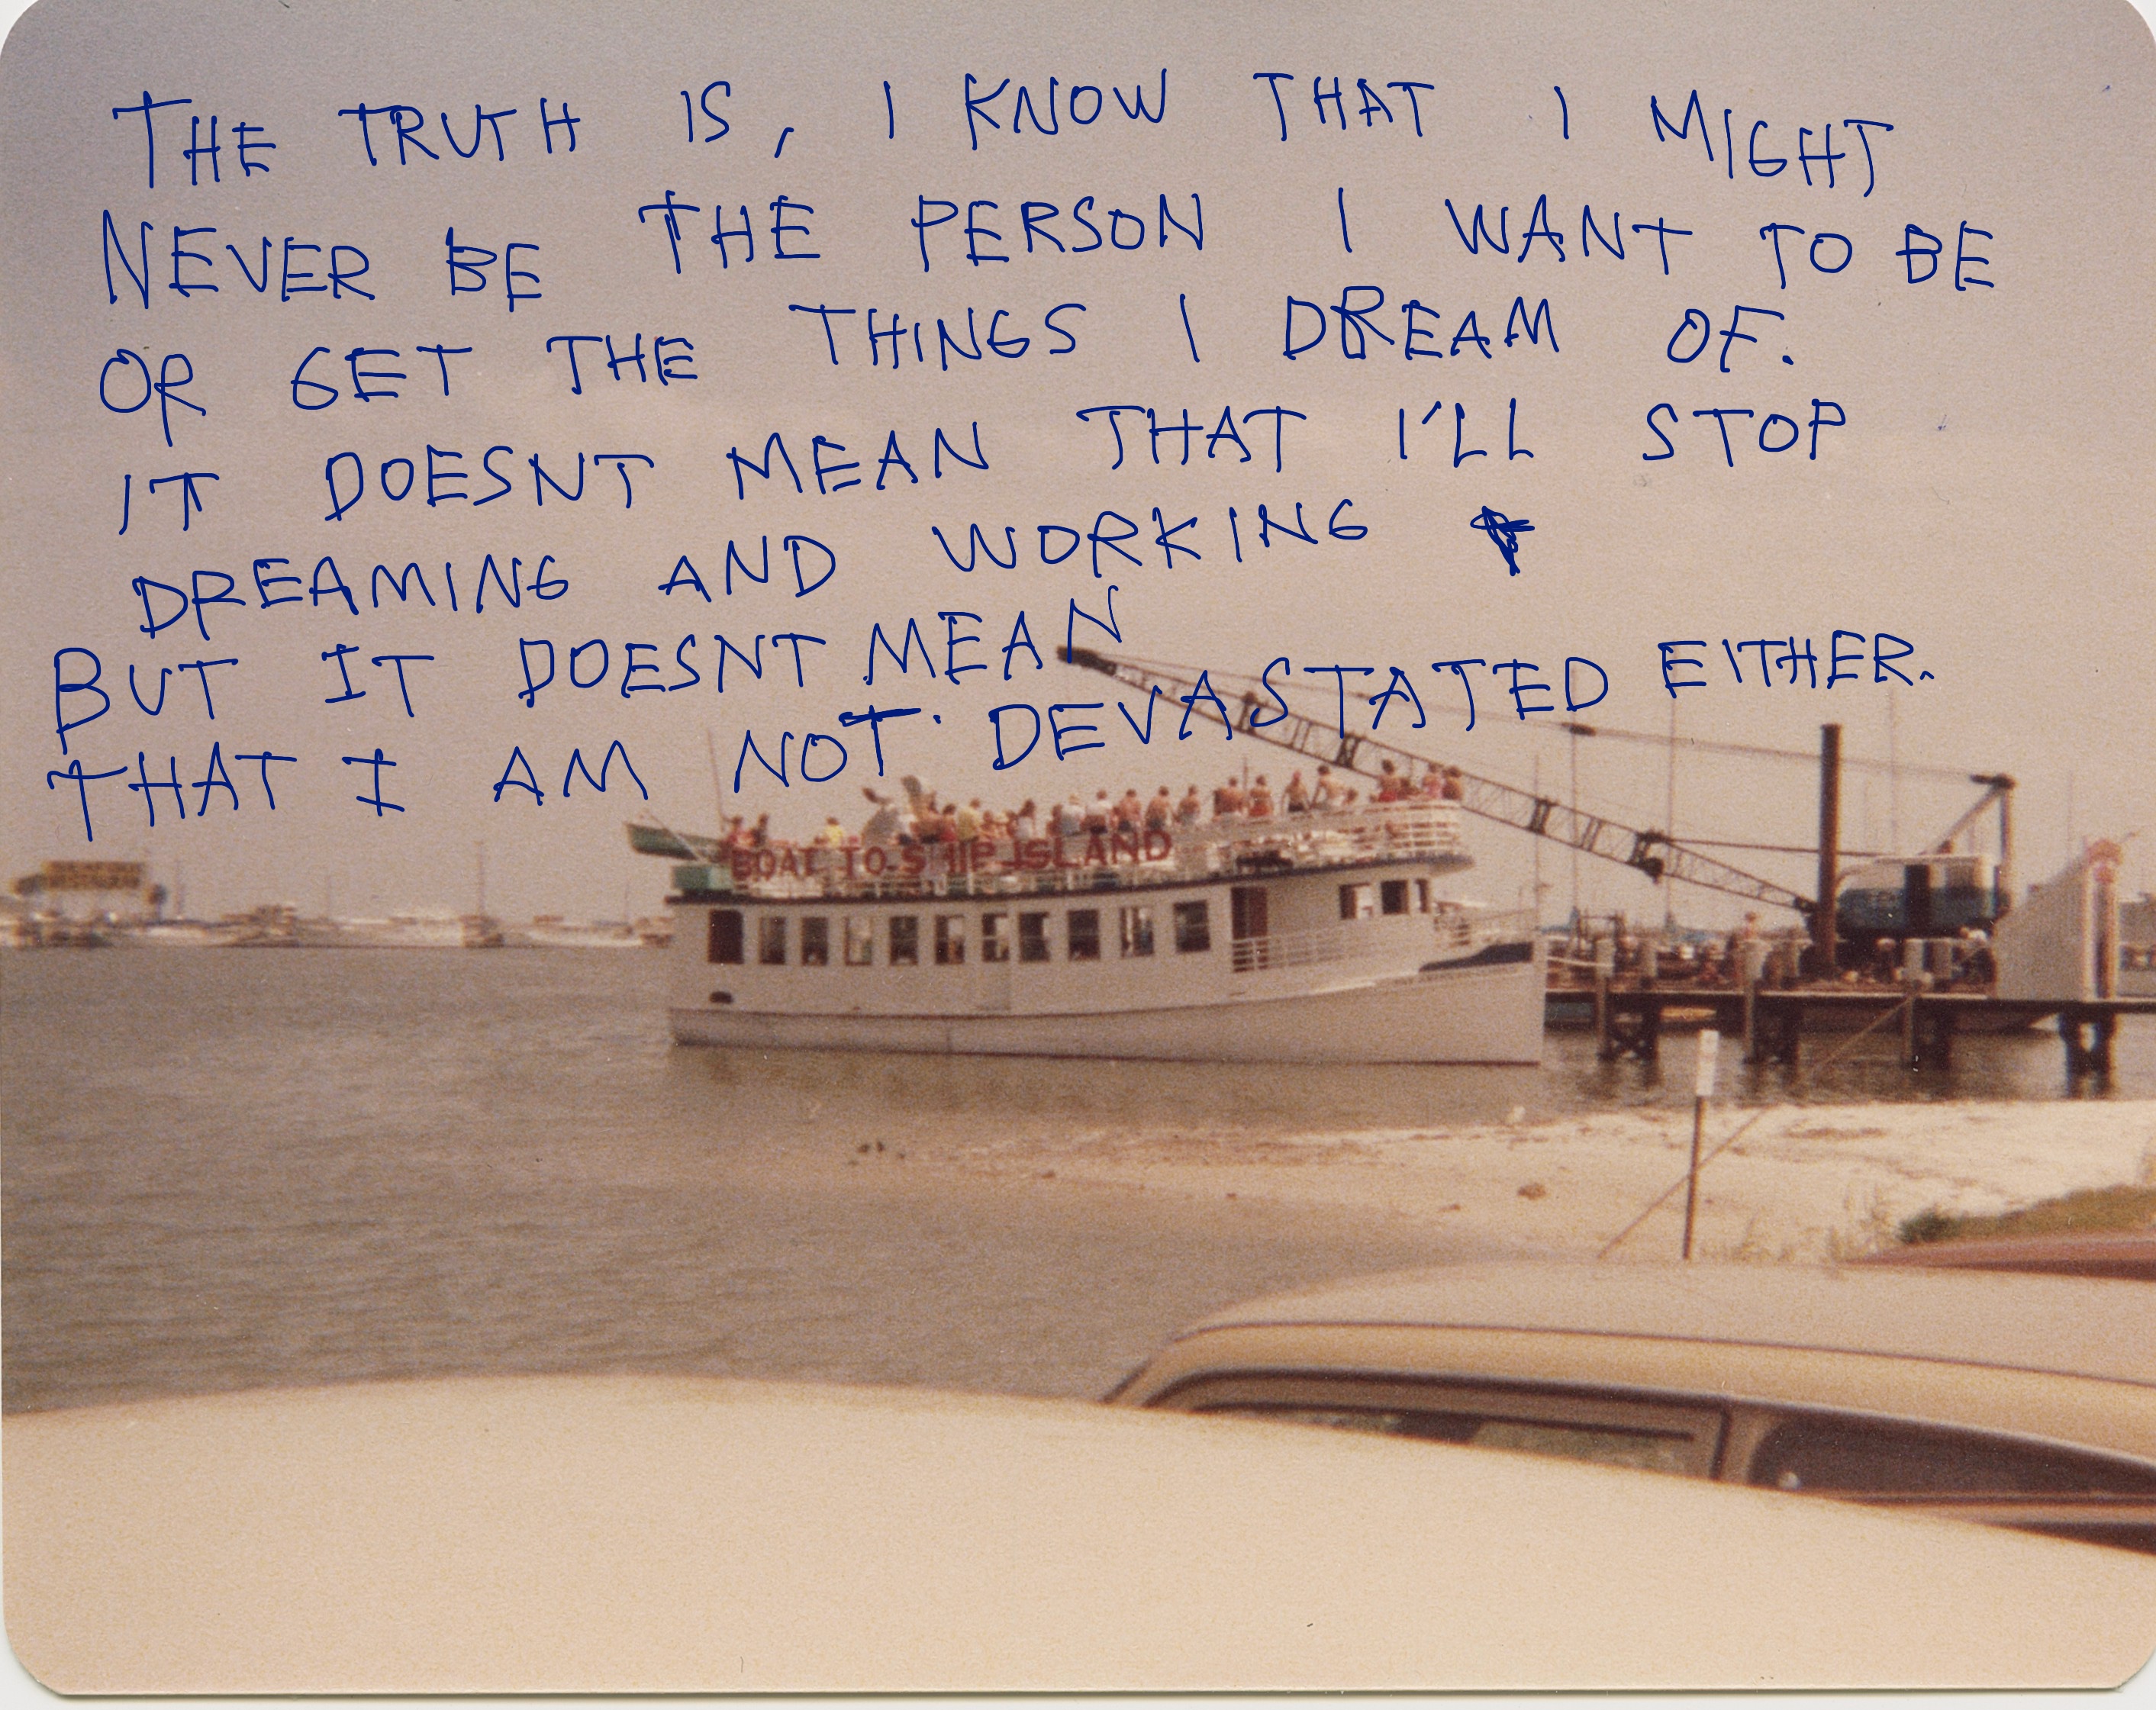 THE TRUTH IS, I KNOW THAT I MIGHT
NEVER BE THE PERSON I WANT TO BE
OR GET THE THINGS I DREAM OF.
IT DOESNT MEAN THAT I'LL STOP
DREAMING AND WORKING
BUT IT DOESNT MEAN
THAT I AM NOT DEVASTATED EITHER.
BOAT TO SHIP ISLAND